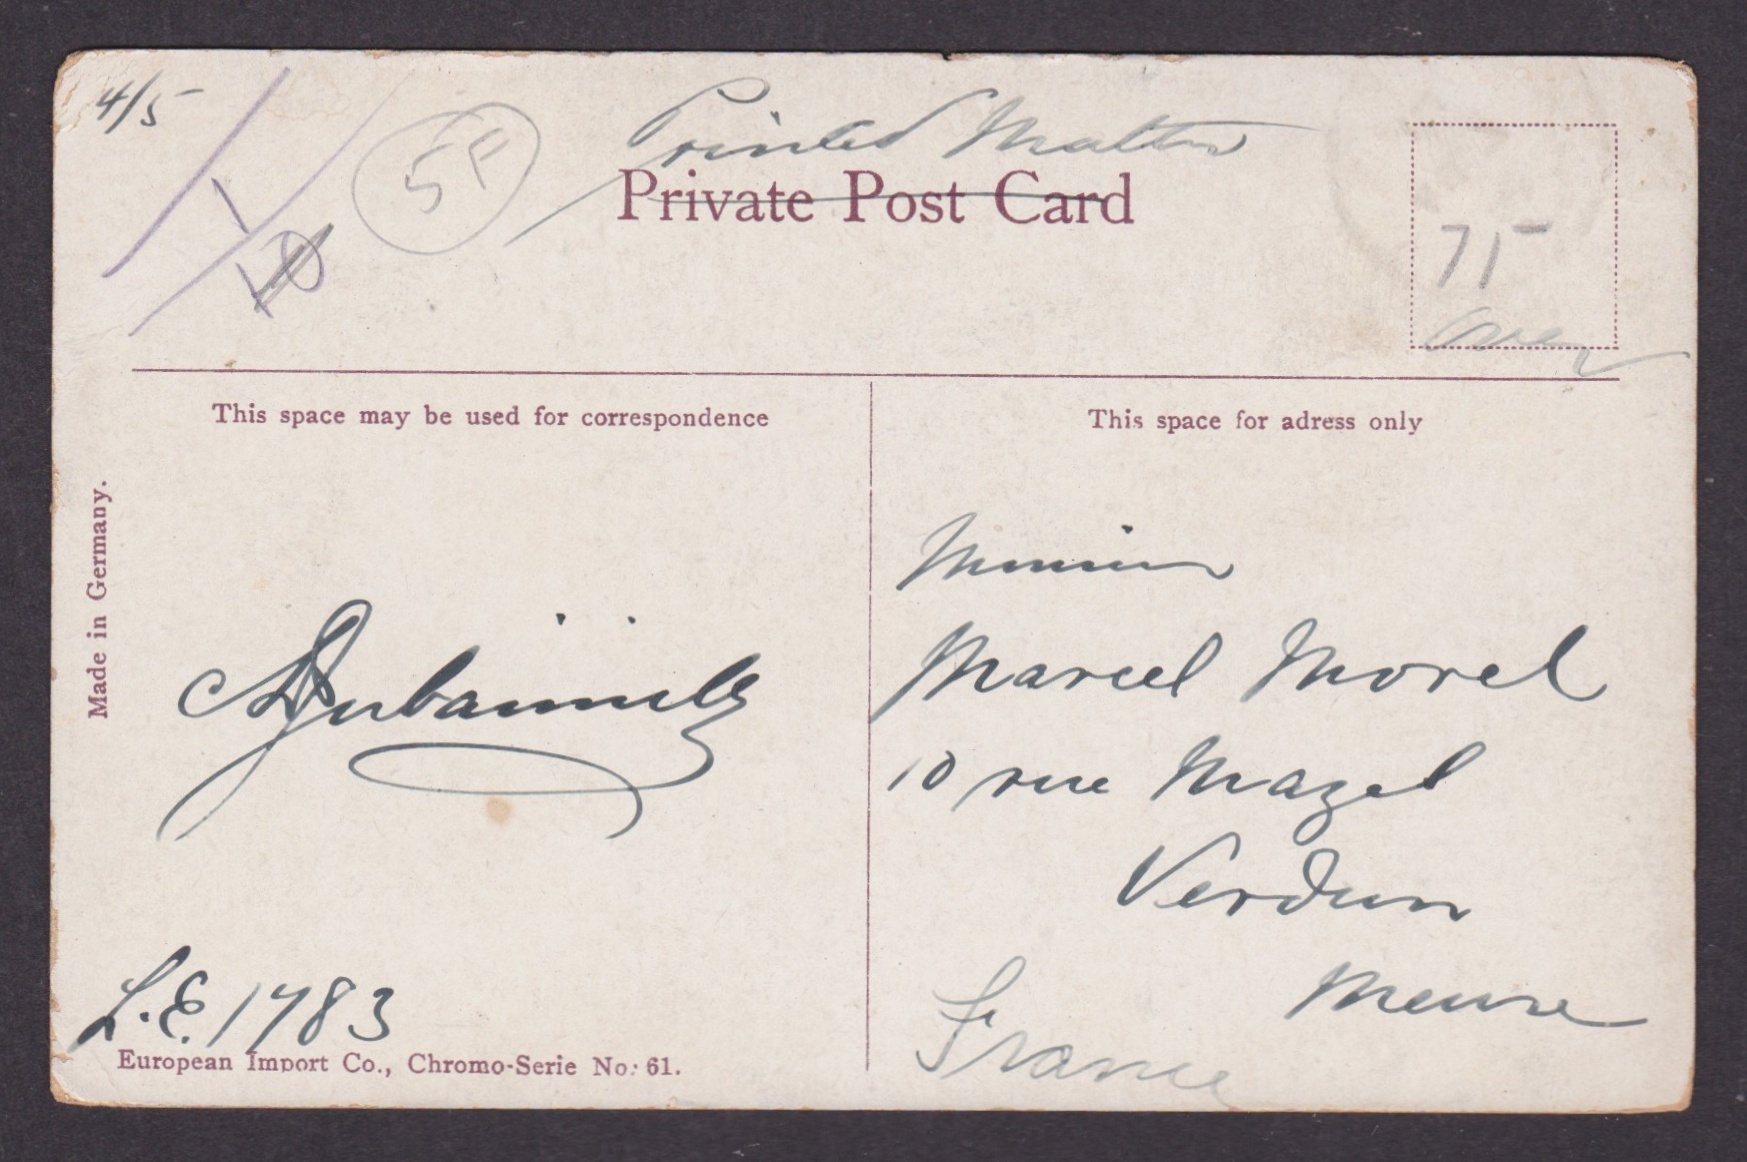 4/5
1
10
5F
Printed Matter
Private Post Card
75
over
This space may be used for correspondence
This space for adress only
Made in Germany.
Monsieur
Marcel Morel
10 rue Mazel
Verdun
Meuse
France
L.E. 1783
European Import Co., Chromo-Serie No: 61.